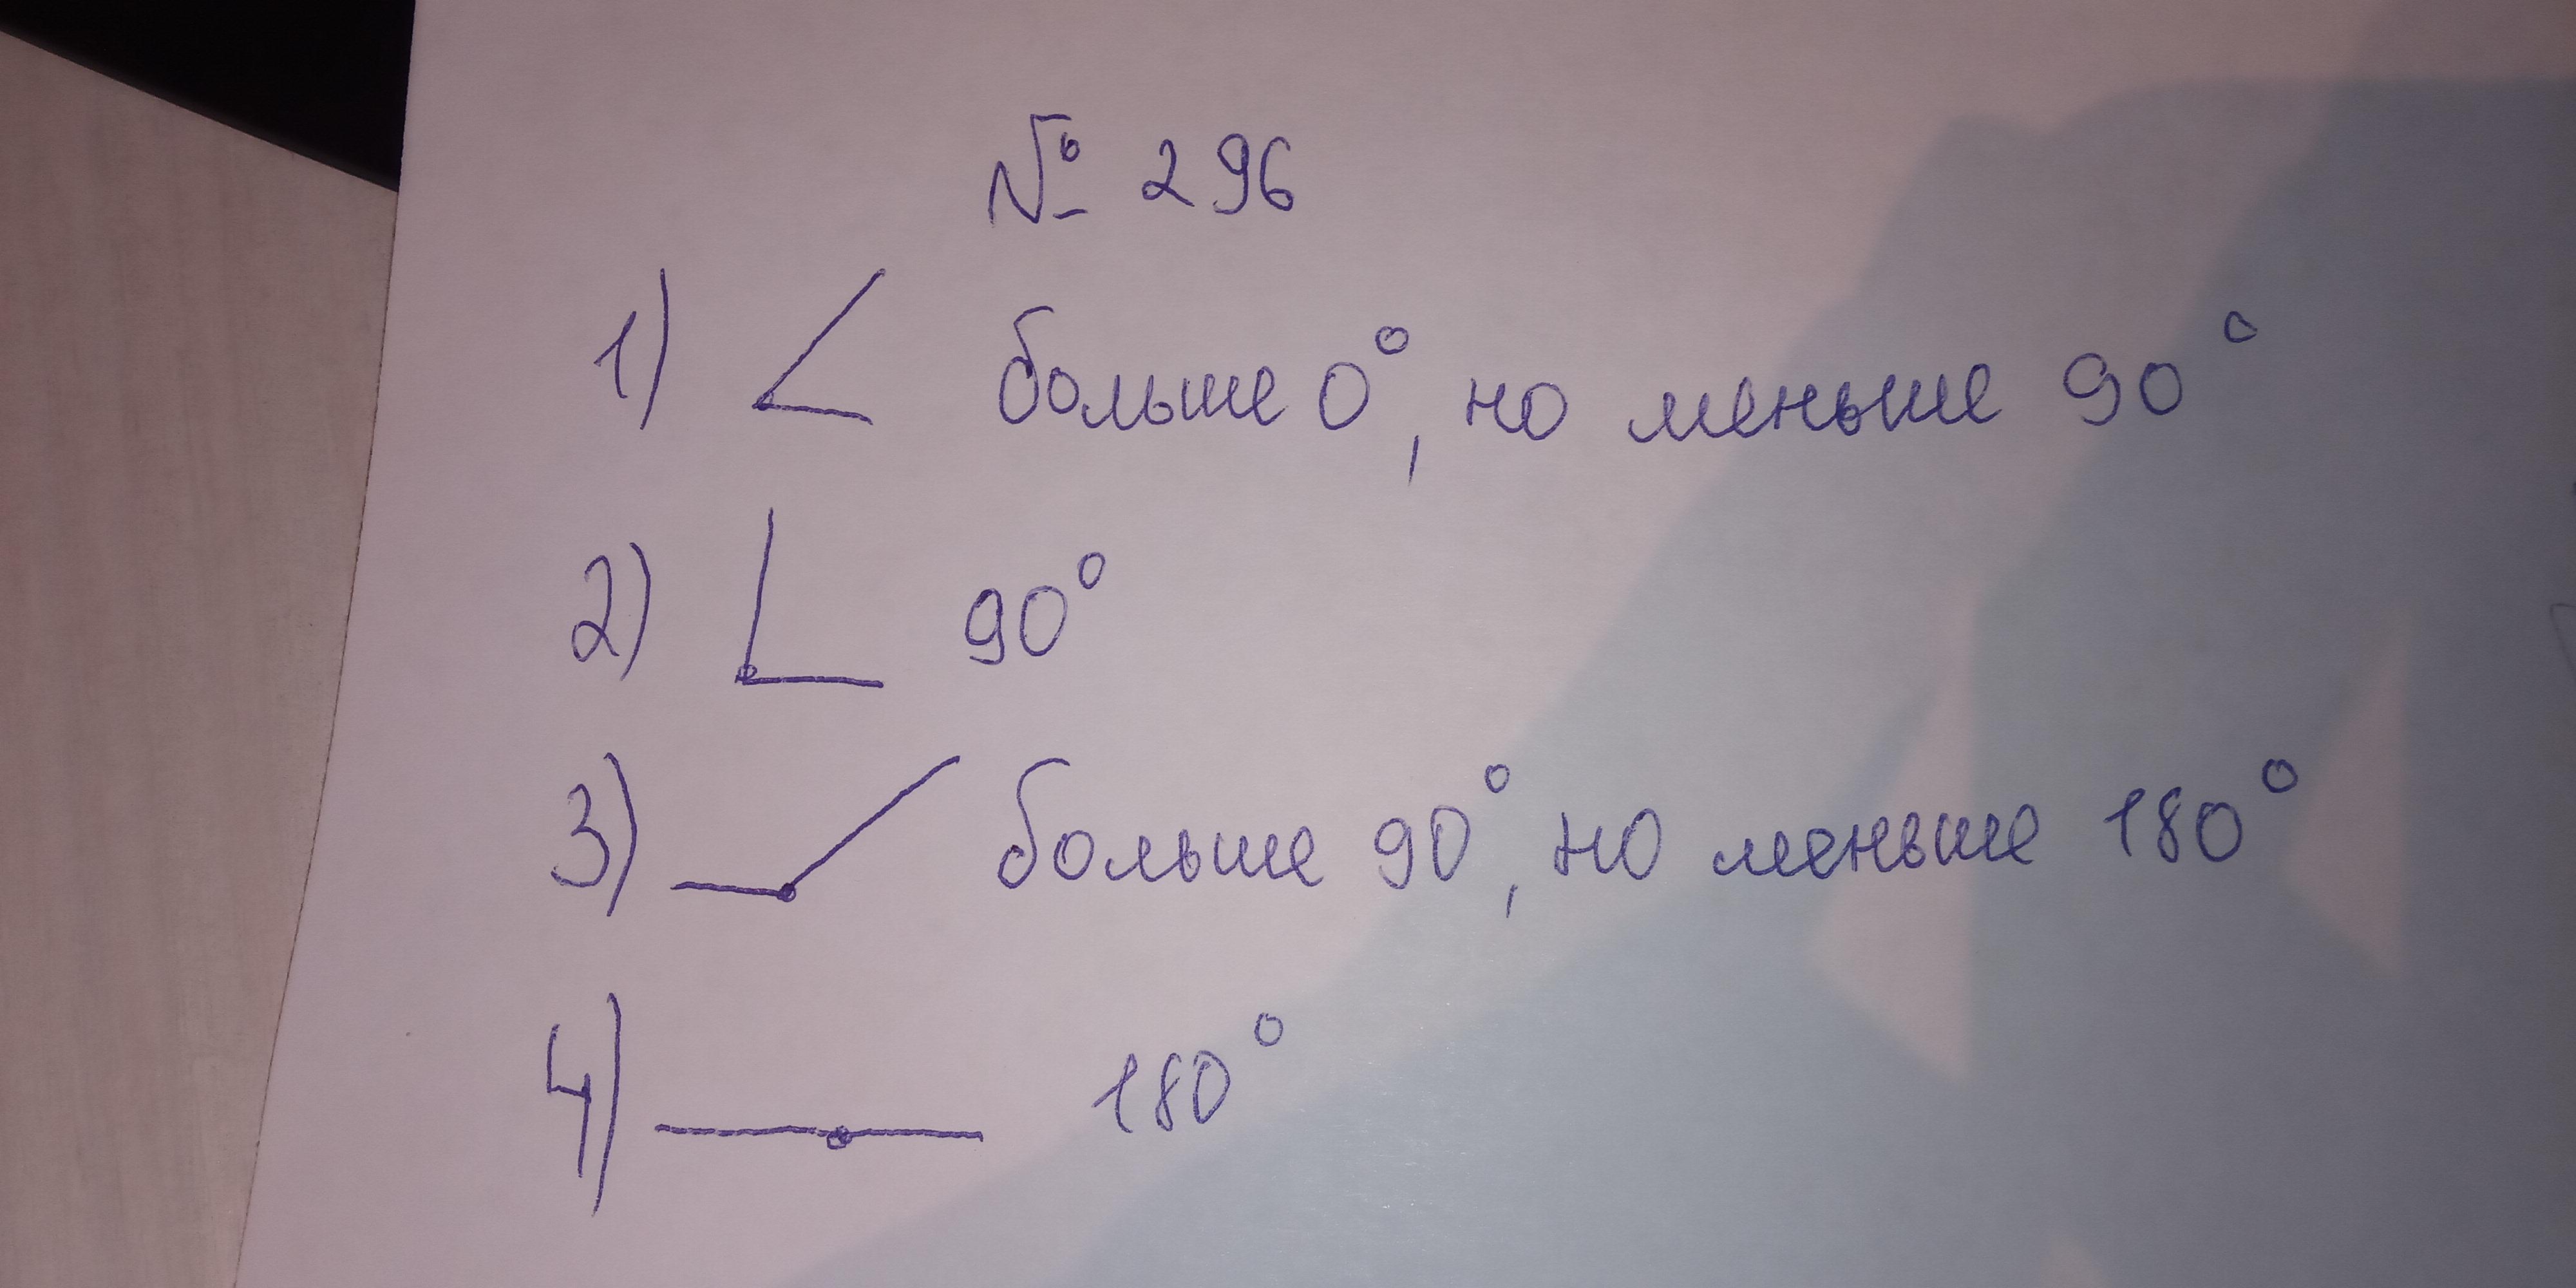 № 296
1) больше 0°, но меньше 90°
2) 90°
3) больше 90°, но меньше 180°
4) 180°